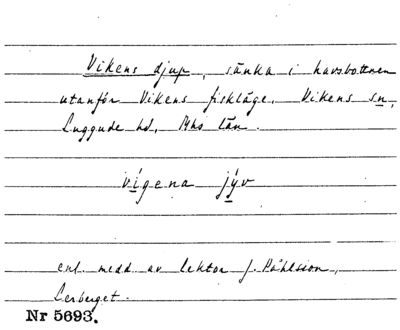 Vikens djup, sänka i havsbottnen
utanför Vikens fiskläge. Vikens sn,
Luggude hd, Mhs län.
vígena jýv
enl. medd. av lektor J. Påhlsson,
Lerberget.
Nr 5693.